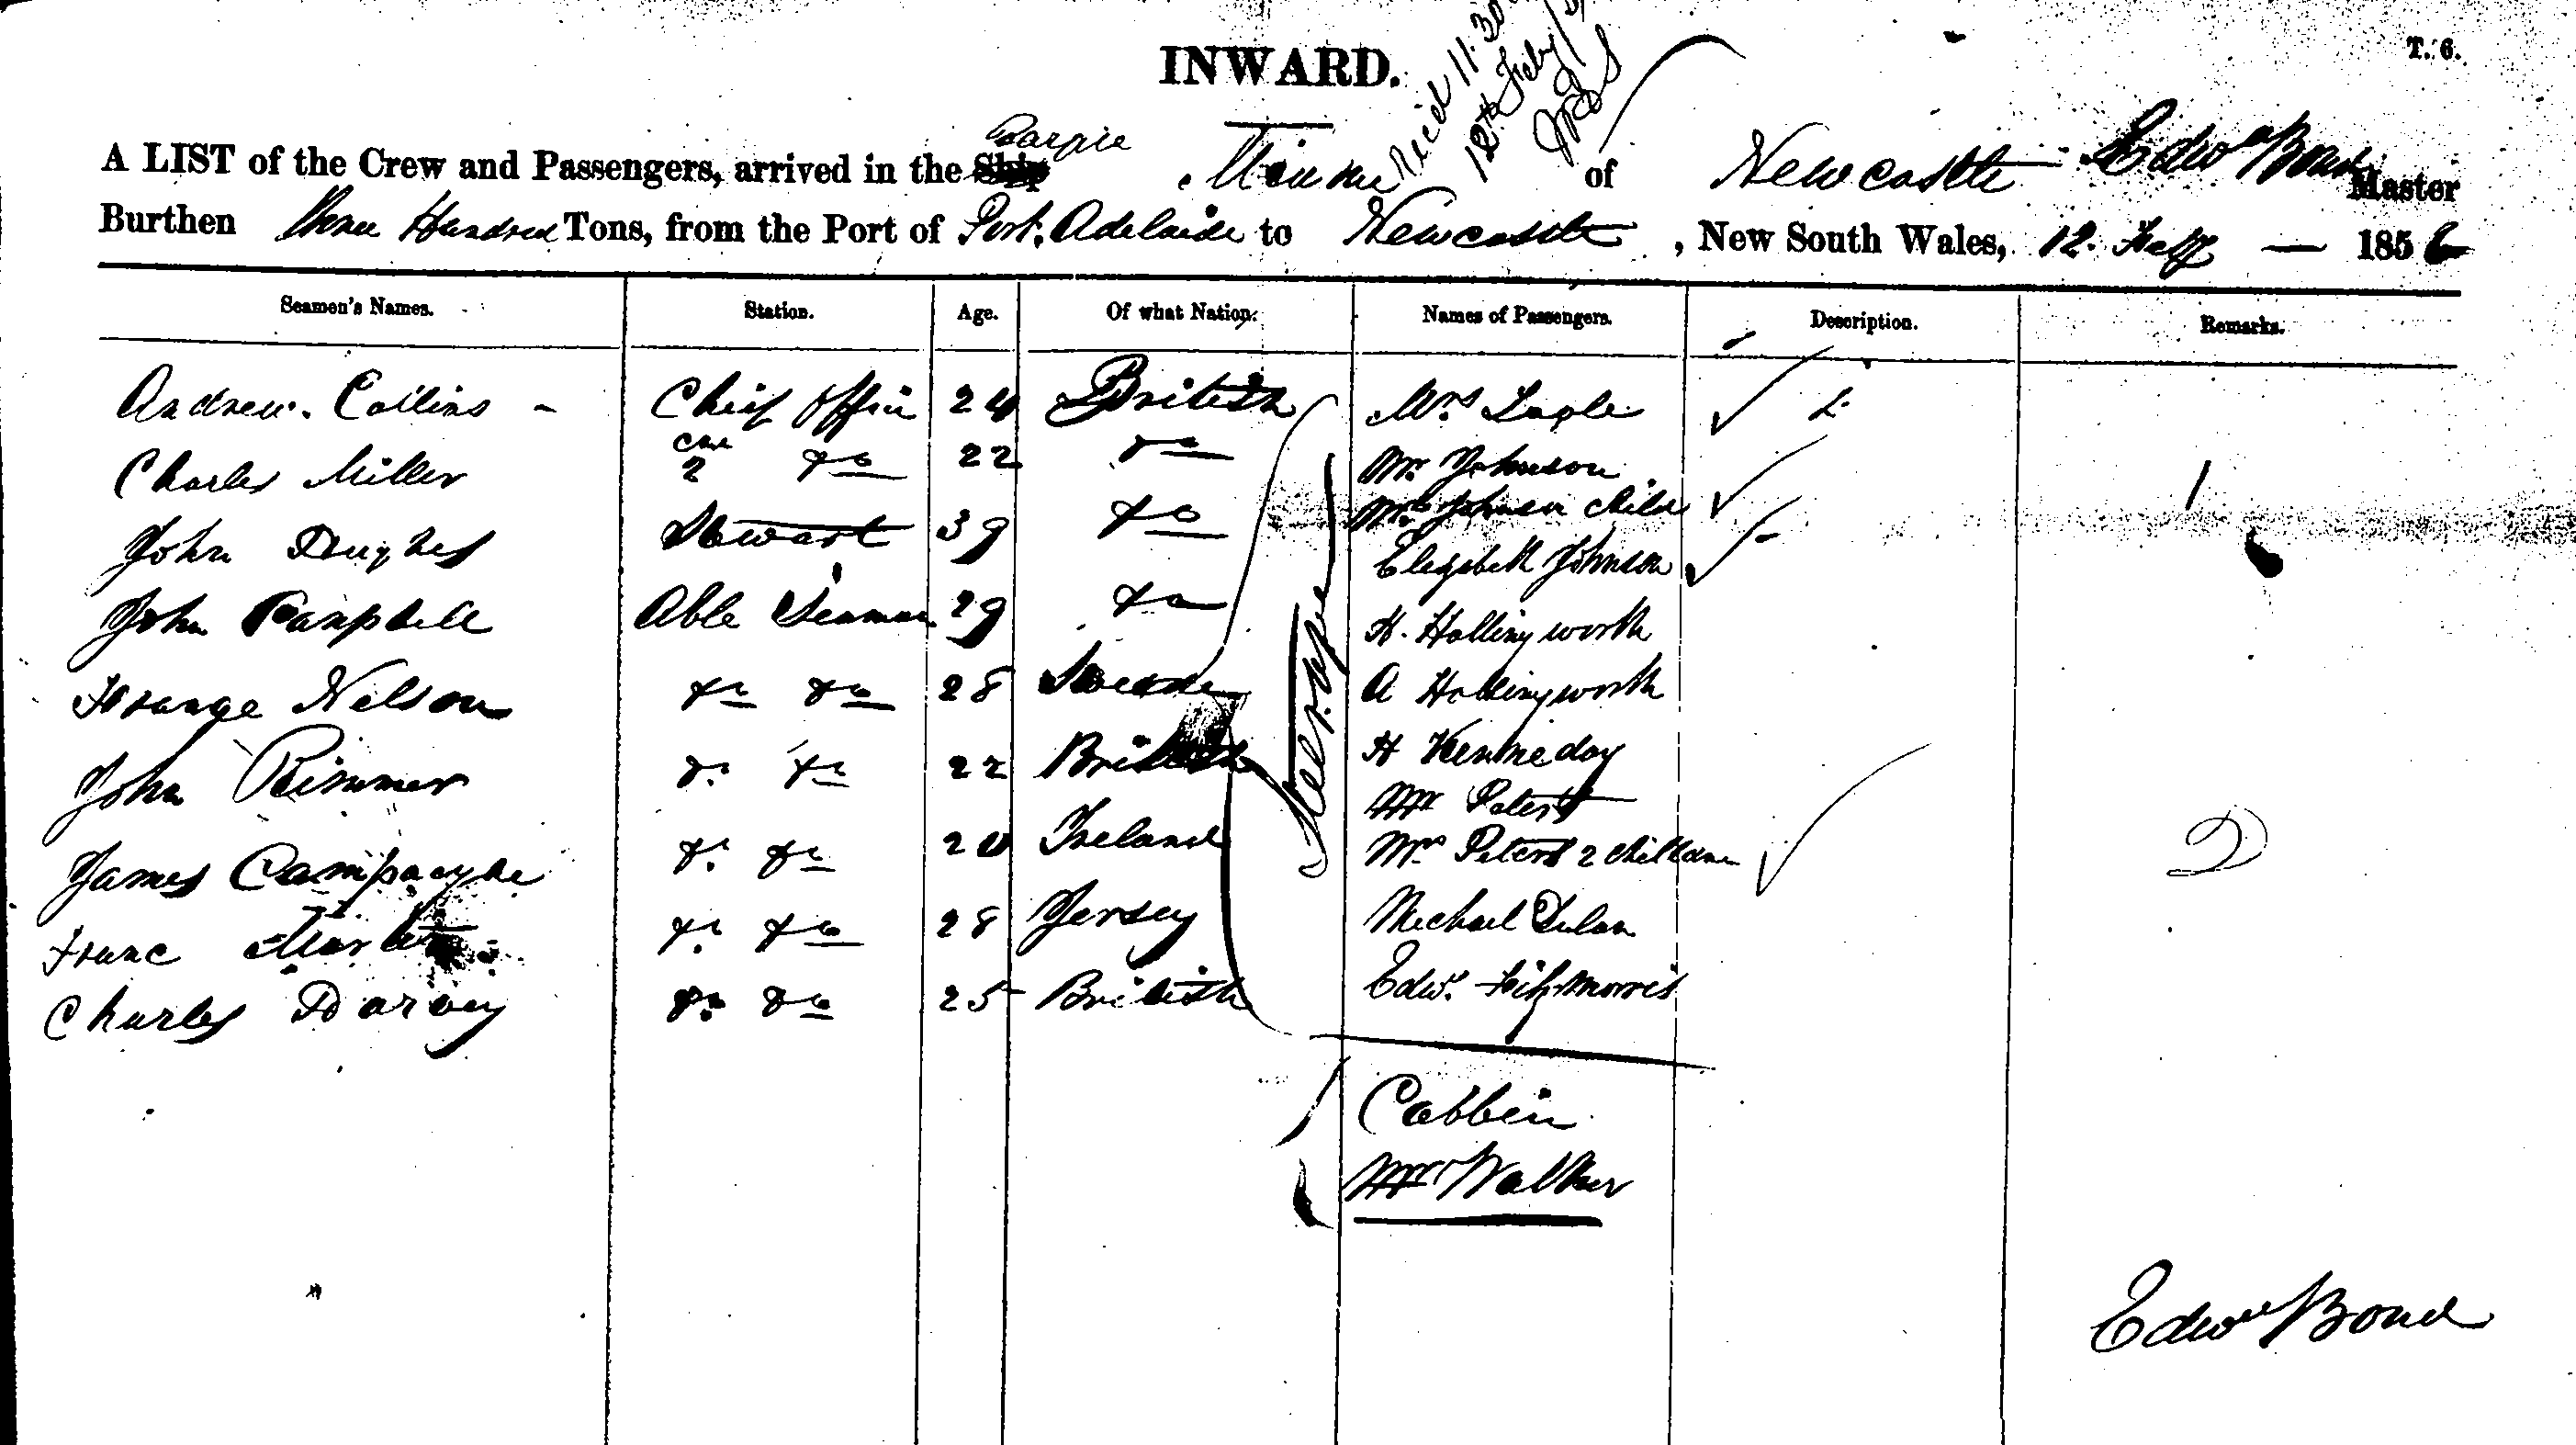 INWARD.
T. 6.
Recd 11.30
12th Feby
A LIST of the Crew and Passengers, arrived in the Ship Barque of Newcastle Edwd Bond Master
Burthen Three Hundred Tons, from the Port of Port. Adelaide to Newcastle, New South Wales, 12. Feby — 1856
Seamen's Names. Station. Age. Of what Nation. Names of Passengers. Description. Remarks.
Andrew. Collins - Chief Officer 24 British Mrs
Charles Miller 2 do 22 do Mr. Johnson 1
John Hughes Stewart 39 do Mrs Johnson child
Elezebeth Johnson
John Campbell Able Seaman 29 do H. Hollingworth
Nelson do do 28 Swede A Hollingworth
John Rimmer do do 22 British H Kenneday
Mr Peters
James do do 20 Ireland Mrs Peters 2 children 2
Franc do do 28 Jersey Michael
Charles Darvey do do 25 British Edwd. Fitzmorris
Steerage
Cabbin
Mr Walker
Edwd Bond